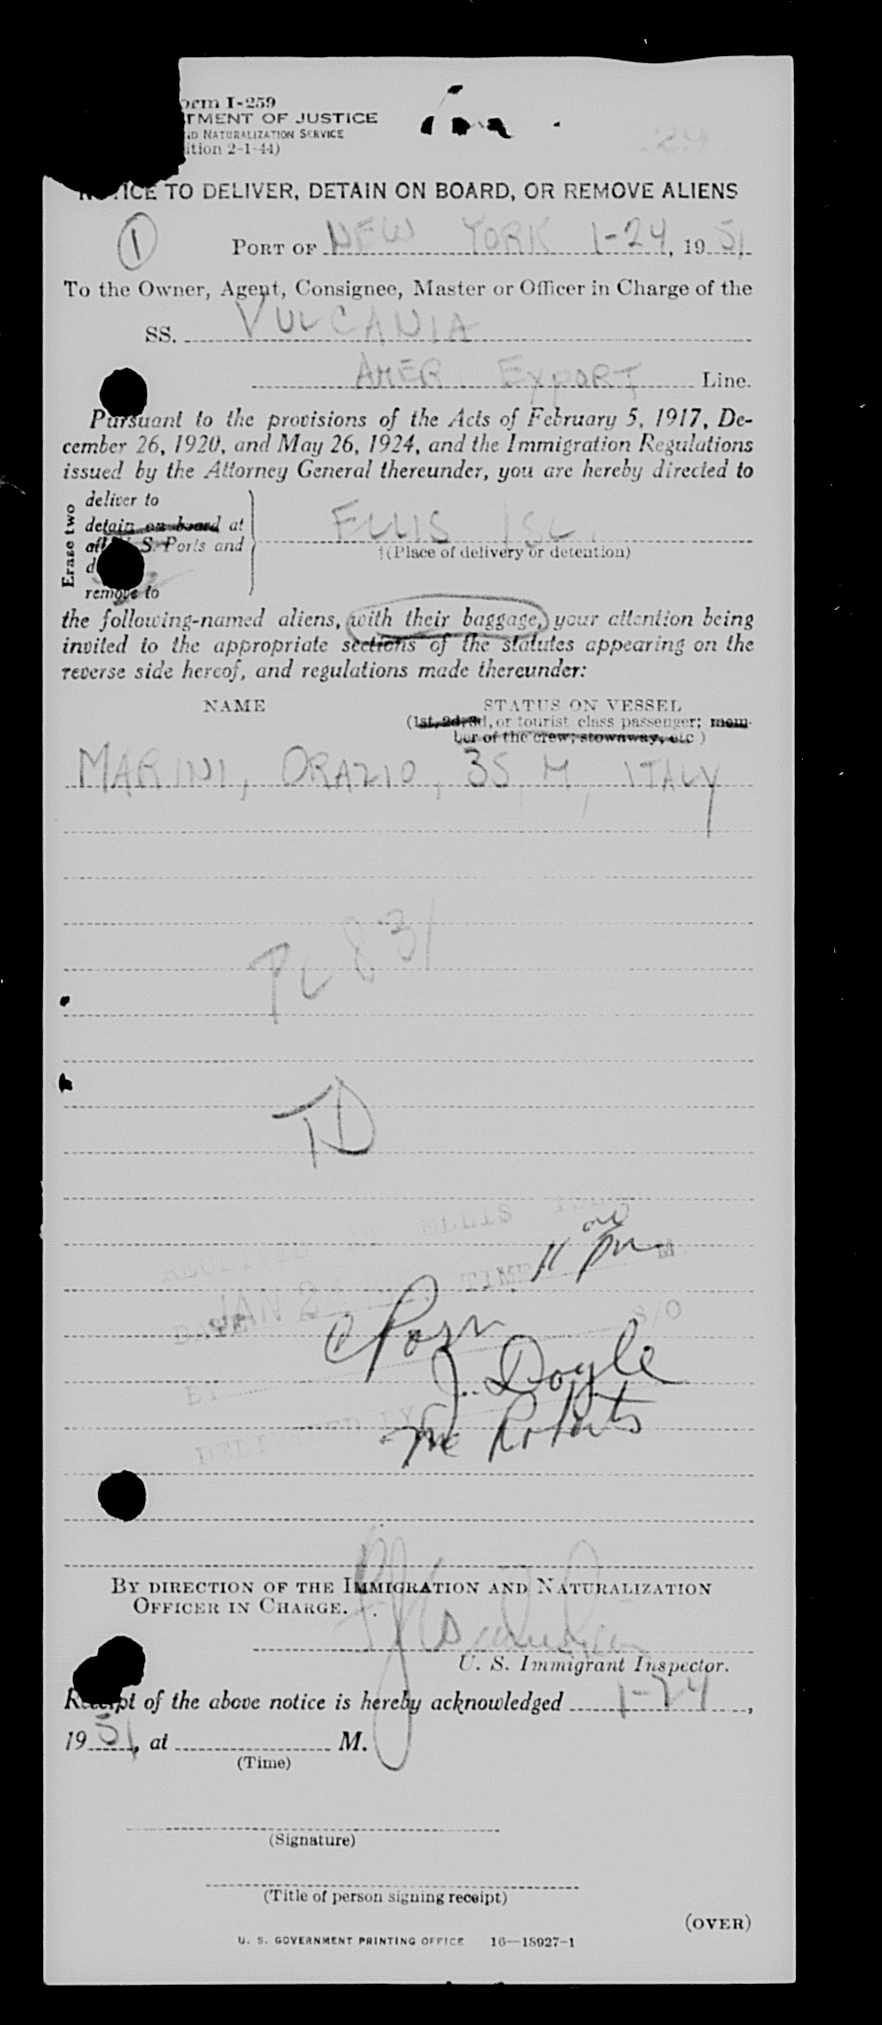 Form I-259
TMENT OF JUSTICE
ND NATURALIZATION SERVICE
ition 2-1-44)
NOTICE TO DELIVER, DETAIN ON BOARD, OR REMOVE ALIENS
1
PORT OF NEW YORK 1-24, 1951
To the Owner, Agent, Consignee, Master or Officer in Charge of the
SS. VULCANIA
AMER EXPORT Line.
Pursuant to the provisions of the Acts of February 5, 1917, De-
cember 26, 1920, and May 26, 1924, and the Immigration Regulations
issued by the Attorney General thereunder, you are hereby directed to
Erase two
deliver to
detain on board at
all U. S. Ports and
remove to
ELLIS ISL.
(Place of delivery or detention)
the following-named aliens, with their baggage, your attention being
invited to the appropriate sections of the statutes appearing on the
reverse side hereof, and regulations made thereunder:
NAME STATUS ON VESSEL
(1st, 2d, 3d, or tourist class passenger; mem-
ber of the crew; stowaway, etc.)
MARINI, ORAZIO, 35 M, ITALY
PL 831
TD
RECEIVED ELLIS
11 00 pm M
DATE JAN 24 TIME
BY S/O
J. Doyle
DELIVERED BY Mc Roberts
BY DIRECTION OF THE IMMIGRATION AND NATURALIZATION
OFFICER IN CHARGE.
U. S. Immigrant Inspector.
Receipt of the above notice is hereby acknowledged 1-24,
1951, at M.
(Time)
(Signature)
(Title of person signing receipt)
(OVER)
U. S. GOVERNMENT PRINTING OFFICE 16—18927-1